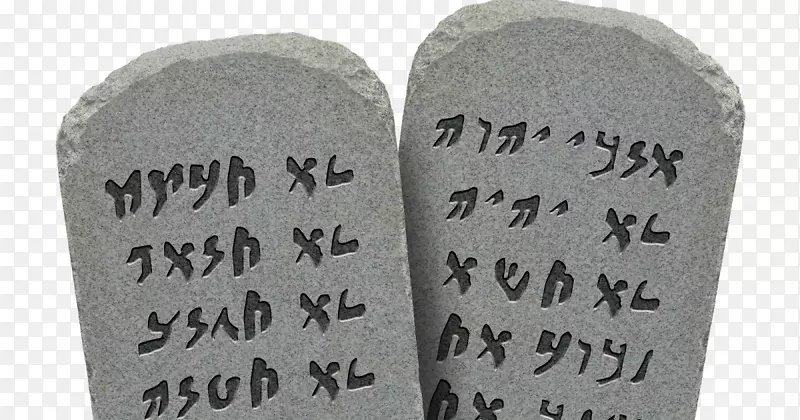 אנכי יהוה
לא יהיה
לא תשא
זכור את
לא תרצח
לא תנאף
לא תגנב
לא תענה